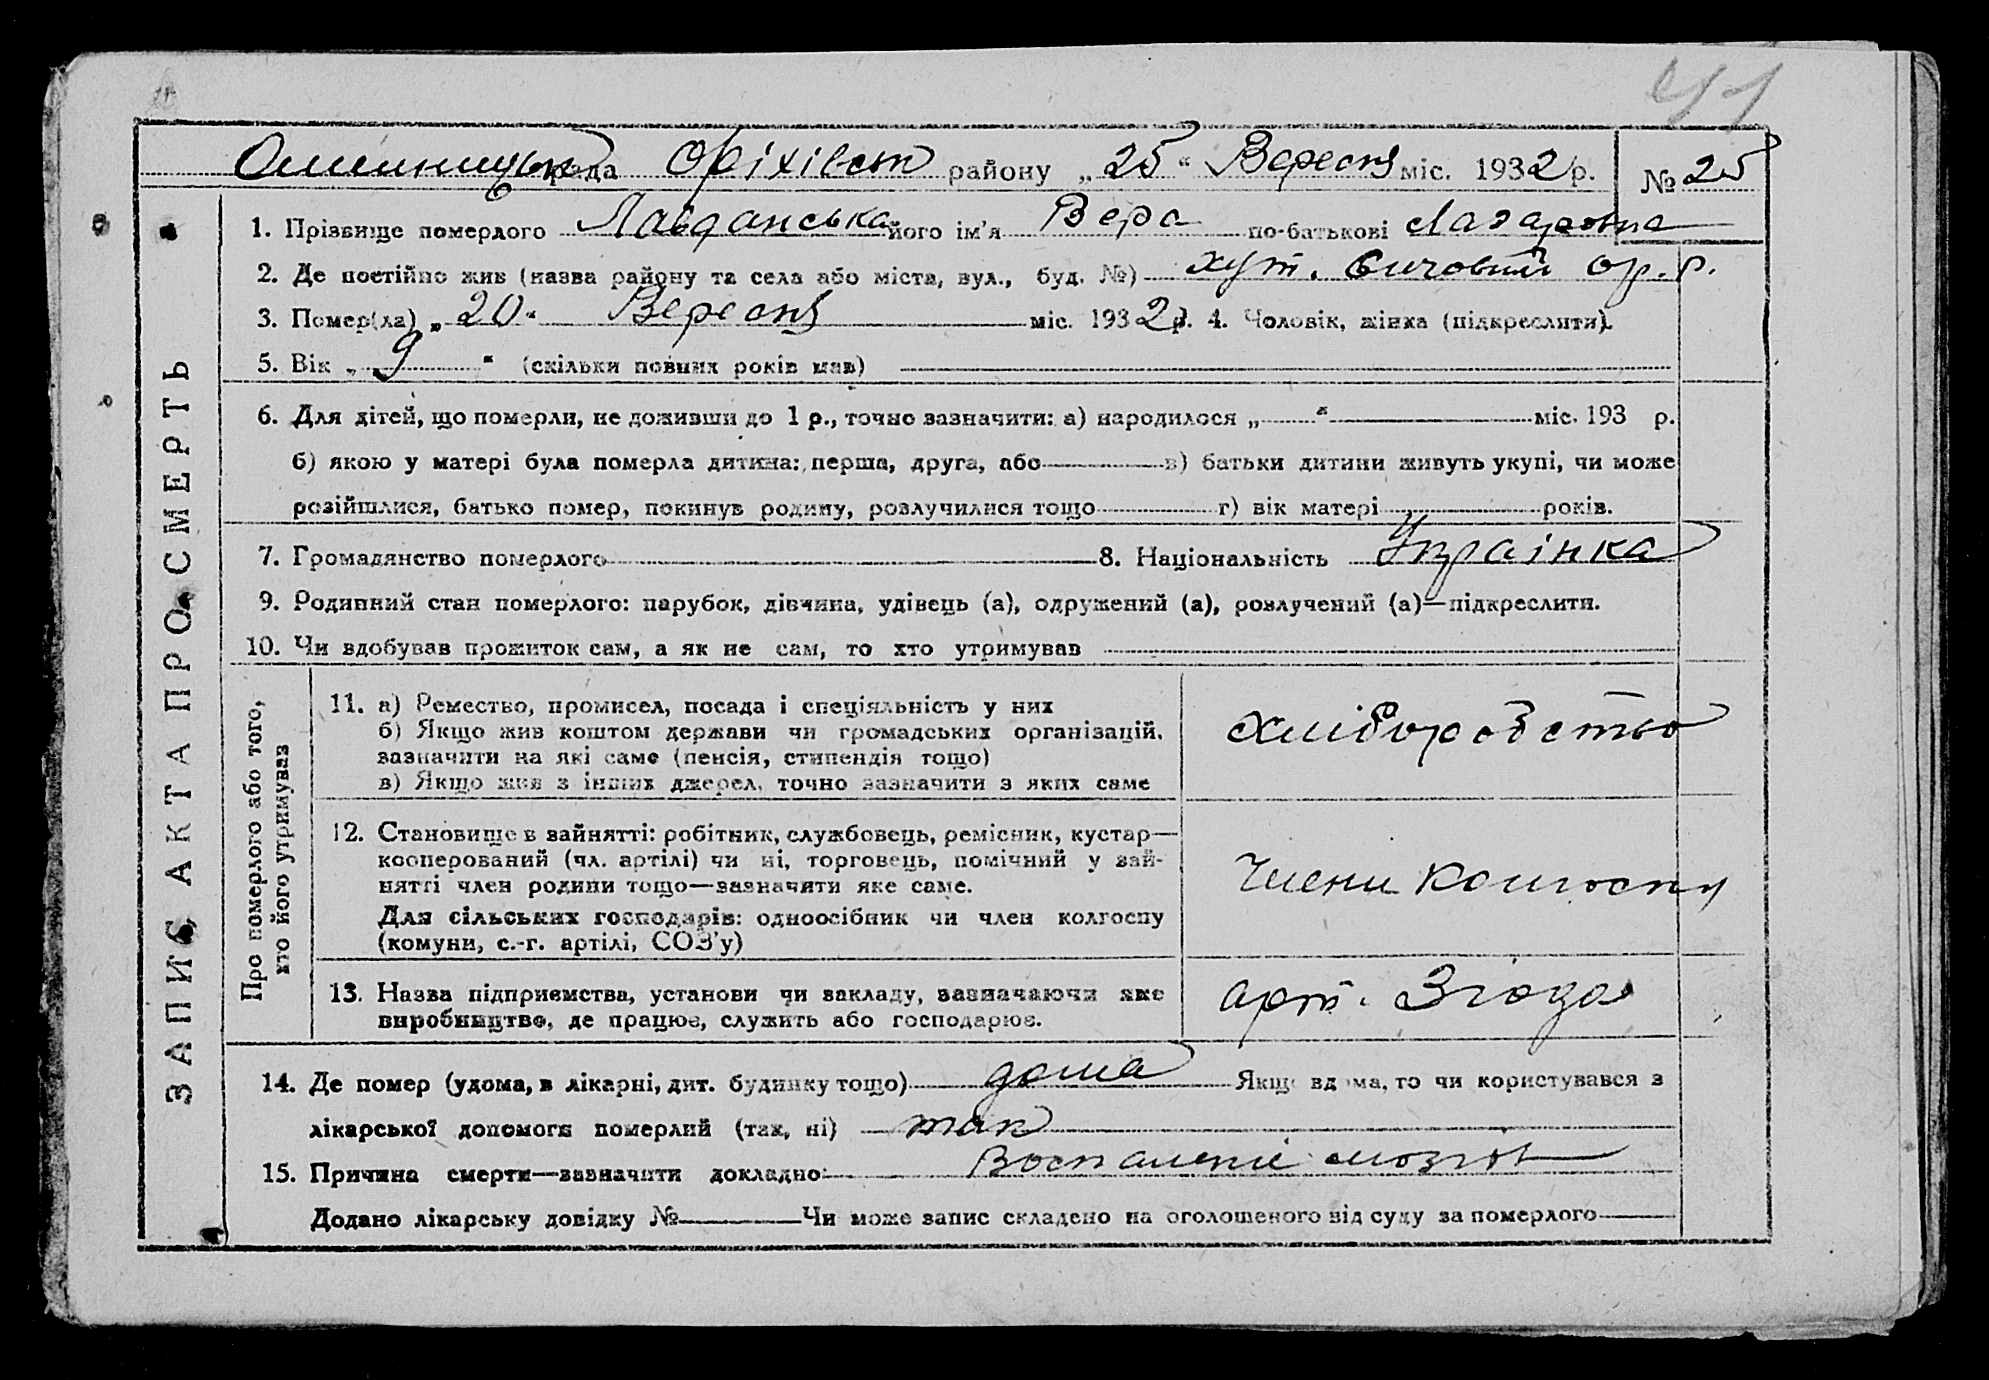 41
Омельницька рада Оріхівськ району „25“ Вересня міс. 1932 р. № 25
ЗАПИС АКТА ПРО СМЕРТЬ
1. Прізвище померлого Лавданська його ім'я Вера по-батькові Лазаровна
2. Де постійно жив (назва району та села або міста, вул., буд. №) хут. ор. р.
3. Помер(ла) „20“ Вересня міс. 1932 р. 4. Чоловік, жінка (підкреслити).
5. Вік „9“ (скільки повних років мав)
6. Для дітей, що померли, не доживши до 1 р., точно зазначити: а) народилося „ “ міс. 193 р.
б) якою у матері була померла дитина: перша, друга, або в) батьки дитини живуть укупі, чи може
розійшлися, батько помер, покинув родину, розлучилися тощо г) вік матері років.
7. Громадянство померлого 8. Національність Українка
9. Родинний стан померлого: парубок, дівчина, удівець (а), одружений (а), розлучений (а)—підкреслити.
10. Чи вдобував прожиток сам, а як не сам, то хто утримував
Про померлого або того,
хто його утримував
11. а) Ремество, промисел, посада і спеціяльність у них
б) Якщо жив коштом держави чи громадських організацій,
зазначити на які саме (пенсія, стипендія тощо)
в) Якщо жив з інших джерел, точно зазначити з яких саме
хліборобство
12. Становище в зайнятті: робітник, службовець, ремісник, кустар—
кооперований (чл. артілі) чи ні, торговець, помічний у зай-
нятті член родини тощо—зазначити яке саме.
Для сільських господарів: одноосібник чи член колгоспу
(комуни, с.-г. артілі, СОЗ'у)
Члени колгоспу
13. Назва підприємства, установи чи закладу, зазначаючи яке
виробництво, де працює, служить або господарює.
арт. Згода
14. Де помер (удома, в лікарні, дит. будинку тощо) дома Якщо вдома, то чи користувався з
лікарської допомоги померлий (так, ні) так
15. Причина смерти—зазначити докладно: Воспаленіє мозгов
Додано лікарську довідку № Чи може запис складено на оголошеного від суду за померлого